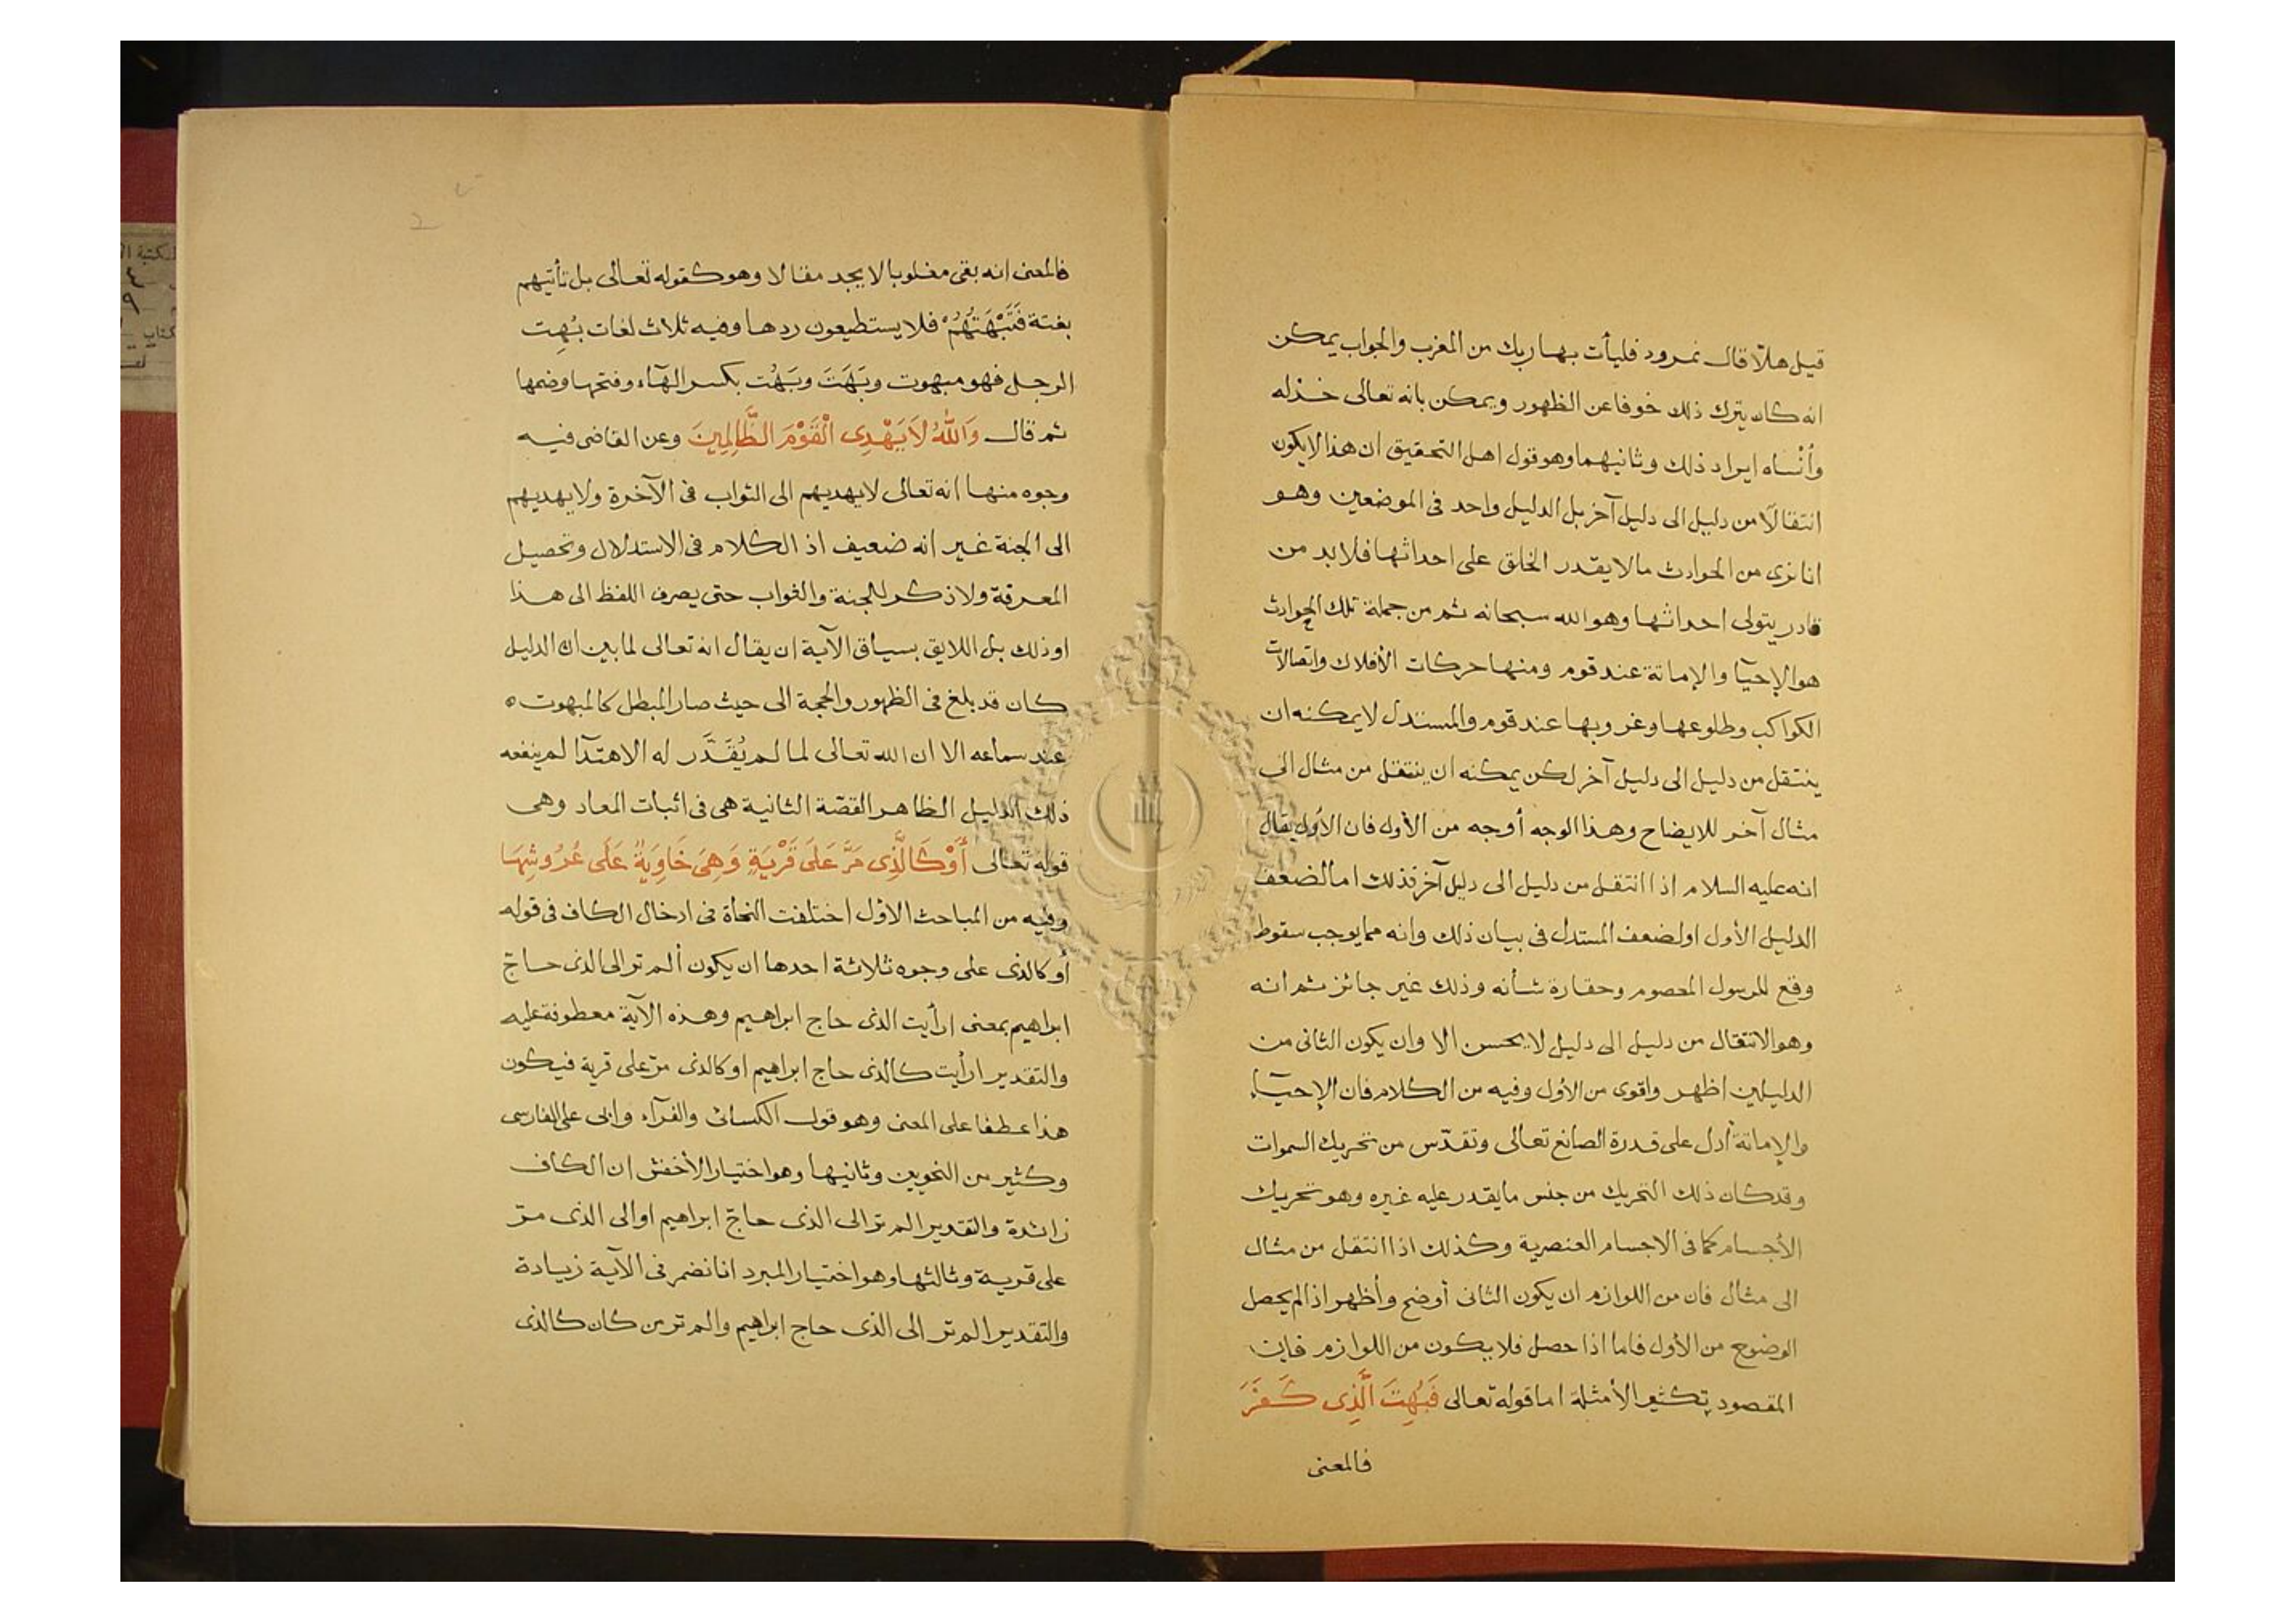 قيل هلّا قال نمرود فليأت بها ربك من المغرب والجواب يمكن
انه كان يترك ذلك خوفا عن الظهور ويمكن بانه تعالى خذله
وأنْساه ايراد ذلك وثانيهما وهو قول اهل التحقيق ان هذا لا يكون
انتقالًا من دليل الى دليل آخر بل الدليل واحد فى الموضعين وهو
انا نرى من الحوادث ما لا يقدر الخلق على احداثها فلا بد من
قادر يتولى احداثها وهو الله سبحانه ثم من جملة تلك الحوادث
هو الإحيآ والإماتة عند قوم ومنها حركات الأفلاك واتصالات
الكواكب وطلوعها وغروبها عند قوم والمستدل لا يمكنه ان
ينتقل من دليل الى دليل آخر لكن يمكنه ان ينتقل من مثال الى
مثال آخر للايضاح وهذا الوجه أوجه من الأول فان الأول يقال
انه عليه السلام اذا انتقل من دليل الى دليل آخر فذلك اما لضعف
الدليل الأول او لضعف المستدل فى بيان ذلك وانه مما يوجب سقوط
وقع للرسول المعصوم وحقارة شأنه وذلك غير جائز ثم انه
وهو الانتقال من دليل الى دليل لا يحسن الا وان يكون الثانى من
الدليلين اظهر واقوى من الأول وفيه من الكلام فان الإحيآء
والإماتة أدل على قدرة الصانع تعالى وتقدّس من تحريك السموات
وقد كان ذلك التحريك من جنس ما يقدر عليه غيره وهو تحريك
الأجسام كما فى الاجسام العنصرية وكذلك اذا انتقل من مثال
الى مثال فان من اللوازم ان يكون الثانى أوضح وأظهر اذا لم يحصل
الوضوح من الأول فاما اذا حصل فلا يكون من اللوازم فان
المقصود تكثير الأمثلة اما قوله تعالى فَبُهِتَ الَّذِى كَفَرَ
فالمعنى
فالمعنى انه بقى مغلوبا لا يجد مقالا وهو كقوله تعالى بل تأتيهم
بغتة فَتَبْهَتُهُمْ فلا يستطيعون ردها وفيه ثلاث لغات بُهِت
الرجل فهو مبهوت وبَهَتَ وبَهُت بكسر الهآء وفتحها وضمها
ثم قال وَاللّٰهُ لَا يَهْدِى الْقَوْمَ الظَّالِمِينَ وعن القاضى فيه
وجوه منها انه تعالى لا يهديهم الى الثواب فى الآخرة ولا يهديهم
الى الجنة غير انه ضعيف اذ الكلام فى الاستدلال وتحصيل
المعرفة ولا ذكر للجنة والثواب حتى يصرف اللفظ الى هذا
او ذلك بل اللايق بسياق الآية ان يقال انه تعالى لما بين ان الدليل
كان قد بلغ فى الظهور والحجة الى حيث صار المبطل كالمبهوت ه
عند سماعه الا ان الله تعالى لما لم يُقَدَّر له الاهتدآ لم ينفعه
ذلك الدليل الظاهر القصّة الثانية هى فى اثبات المعاد وهى
قوله تعالى أَوْ كَالَّذِى مَرَّ عَلَى قَرْيَةٍ وَهِىَ خَاوِيَةٌ عَلَى عُرُوشِهَا
وفيه من المباحث الاوّل اختلفت النحاة فى ادخال الكاف فى قوله
أو كالذى على وجوه ثلاثة احدها ان يكون ألم تر الى الذى حاجّ
ابراهيم بمعنى ارأيت الذى حاج ابراهيم وهذه الآية معطوفة عليه
والتقدير ارأيت كالذى حاج ابراهيم او كالذى مرّ على قرية فيكون
هذا عطفا على المعنى وهو قول الكسائى والفرآء وابى على الفارسى
وكثير من النحويين وثانيها وهو اختيار الأخفش ان الكاف
زائدة والتقدير الم تر الى الذى حاجّ ابراهيم او الى الذى مرّ
على قرية وثالثها وهو اختيار المبرد انا نضمر فى الآية زيادة
والتقدير الم تر الى الذى حاج ابراهيم والم تر من كان كالذى